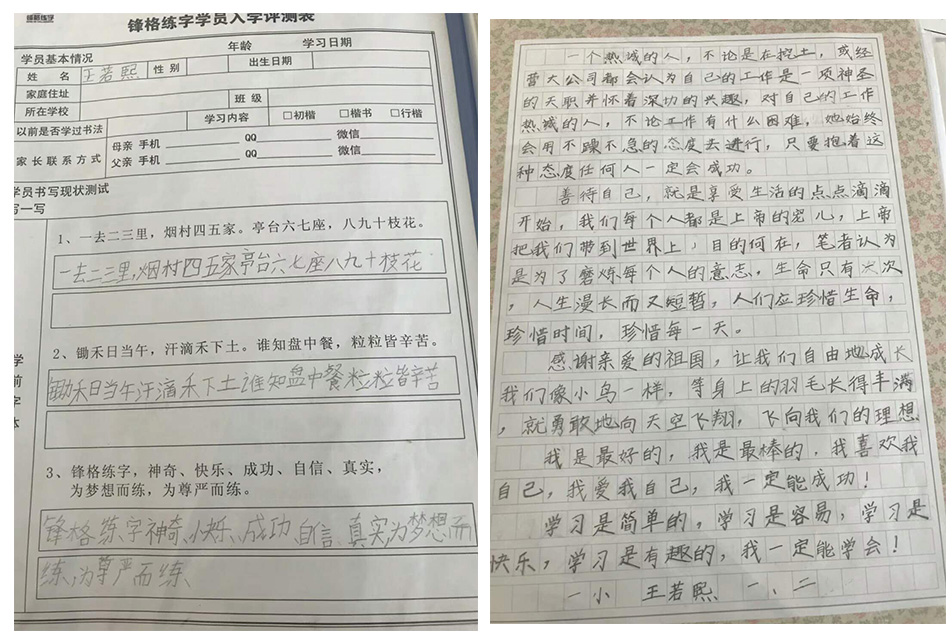 锋格练字
锋格练字学员入学评测表
学员基本情况 年龄 学习日期
姓名 王若熙 性别 出生日期
家庭住址
所在学校 班级
以前是否学过书法 学习内容 □初楷 □楷书 □行楷
家长联系方式 母亲 手机 QQ 微信
父亲 手机 QQ 微信
学员书写现状测试
写一写
1、一去二三里，烟村四五家。亭台六七座，八九十枝花。
一去二三里，烟村四五家亭台六七座八九十枝花
2、锄禾日当午，汗滴禾下土。谁知盘中餐，粒粒皆辛苦。
锄禾日当午汗滴禾下土谁知盘中餐粒粒皆辛苦
学
前
字
体
3、锋格练字，神奇、快乐、成功、自信、真实，
为梦想而练，为尊严而练。
锋格练字神奇、快乐、成功、自信、真实，为梦想而
练，为尊严而练、
一个热诚的人，不论是在挖土，或经
营大公司都会认为自己的工作是一项神圣
的天职并怀着深切的兴趣，对自己的工作
热诚的人，不论工作有什么困难，她始终
会用不躁不急的态度去进行，只要抱着这
种态度任何人一定会成功。
善待自己，就是享受生活的点点滴滴
开始，我们每个人都是上帝的宠儿，上帝
把我们带到世界上，目的何在，笔者认为
是为了磨炼每个人的意志。生命只有次
，人生漫长而又短暂，人们应珍惜生命，
珍惜时间，珍惜每一天。
感谢亲爱的祖国，让我们自由地成长
我们像小鸟一样，等身上的羽毛长得丰满
，就勇敢地向天空飞翔，飞向我们的理想
我是最好的，我是最棒的，我喜欢我
自己，我爱我自己，我一定能成功！
学习是简单的，学习是容易，学习是
快乐，学习是有趣的，我一定能学会！
一小 王若熙 一、二